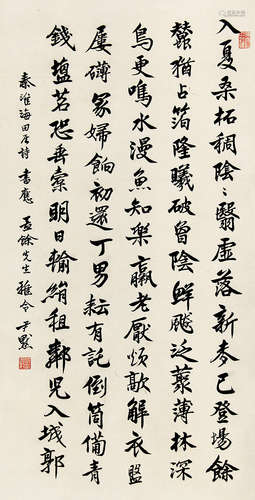 入夏桑柘稠陰〻翳虛落新麥已登場餘
蠶猶占箔隆曦破曾陰鮮飇泛叢薄林深
鳥更鳴水漫魚知樂羸老厭煩歊解衣盤
屢礴冢婦餉初還丁男耘有託倒筒備青
錢鹽茗恐垂橐明日輸絹租鄰兒入城郭
秦淮海田居詩 書應 孟餘先生雅令 尹默